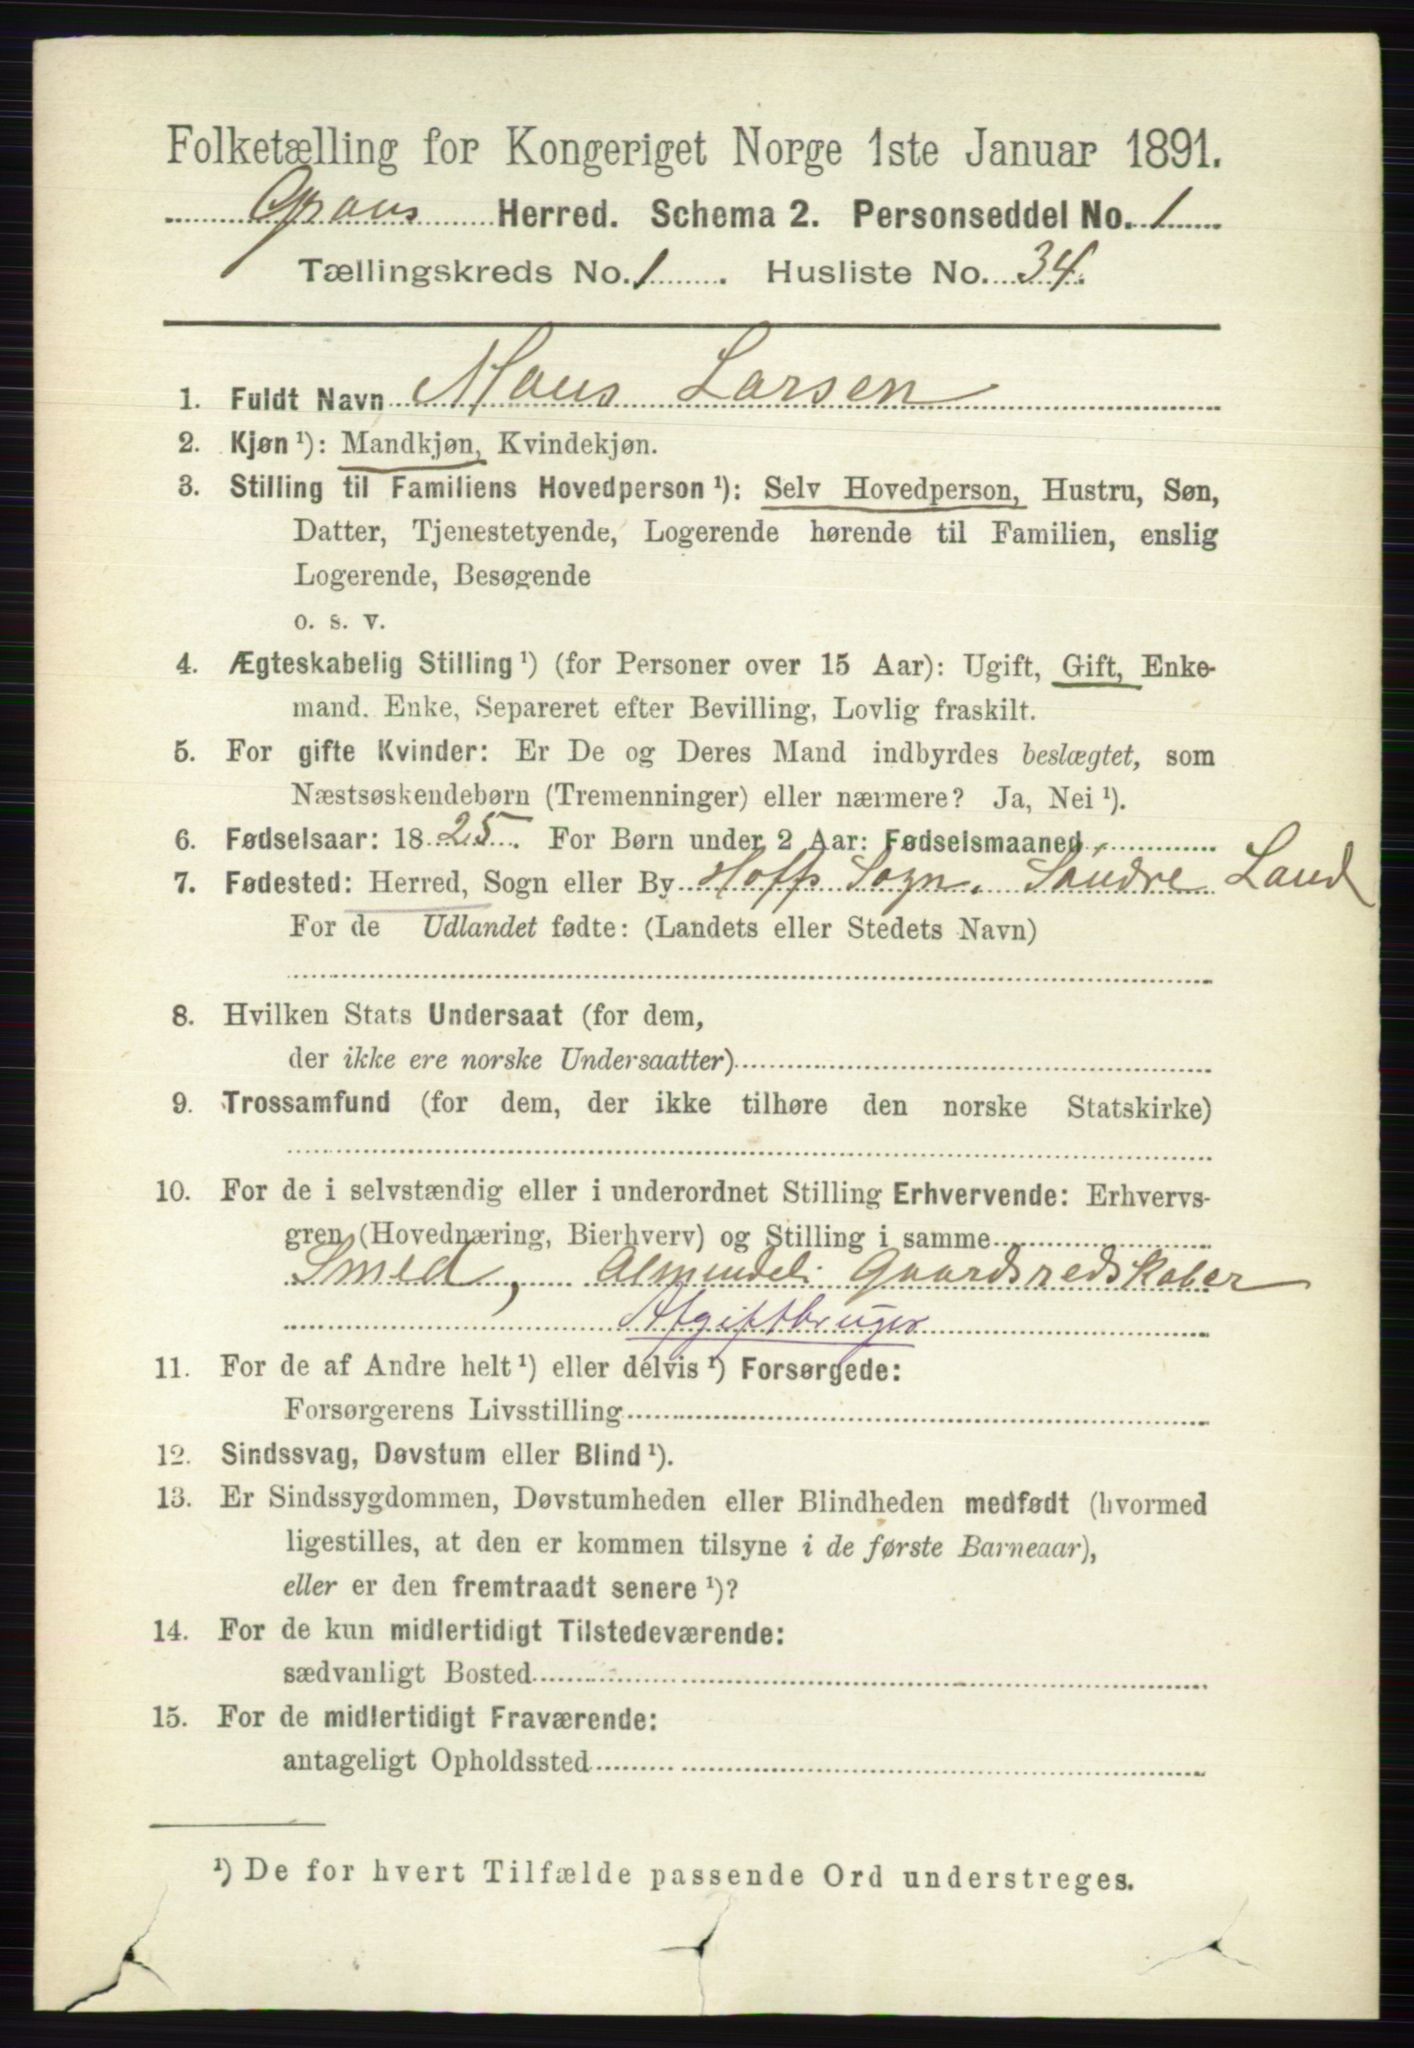 Folketælling for Kongeriget Norge 1ste Januar 1891.
Grans Herred. Schema 2. Personseddel No. 1
Tællingskreds No. 1. Husliste No. 34.
1. Fuldt Navn Mons Larsen
2. Kjøn ¹): Mandkjøn, Kvindekjøn.
3. Stilling til Familiens Hovedperson ¹): Selv Hovedperson, Hustru, Søn,
Datter, Tjenestetyende, Logerende hørende til Familien, enslig
Logerende, Besøgende
o. s. v.
4. Ægteskabelig Stilling ¹) (for Personer over 15 Aar): Ugift, Gift, Enke-
mand. Enke, Separeret efter Bevilling, Lovlig fraskilt.
5. For gifte Kvinder: Er De og Deres Mand indbyrdes beslægtet, som
Næstsøskendebørn (Tremenninger) eller nærmere? Ja, Nei ¹).
6. Fødselsaar: 1825. For Børn under 2 Aar: Fødselsmaaned
7. Fødested: Herred, Sogn eller By Hoffs Sogn. Söndre Land
For de Udlandet fødte: (Landets eller Stedets Navn)
8. Hvilken Stats Undersaat (for dem,
der ikke ere norske Undersaatter)
9. Trossamfund (for dem, der ikke tilhøre den norske Statskirke)
10. For de i selvstændig eller i underordnet Stilling Erhvervende: Erhvervs-
gren (Hovednæring, Bierhverv) og Stilling i samme
Smed, Almindeli Gaardsredskaber
Afgiftbruger
11. For de af Andre helt ¹) eller delvis ¹) Forsørgede:
Forsørgerens Livsstilling
12. Sindssvag, Døvstum eller Blind ¹).
13. Er Sindssygdommen, Døvstumheden eller Blindheden medfødt (hvormed
ligestilles, at den er kommen tilsyne i de første Barneaar),
eller er den fremtraadt senere ¹)?
14. For de kun midlertidigt Tilstedeværende:
sædvanligt Bosted
15. For de midlertidigt Fraværende:
antageligt Opholdssted
¹) De for hvert Tilfælde passende Ord understreges.